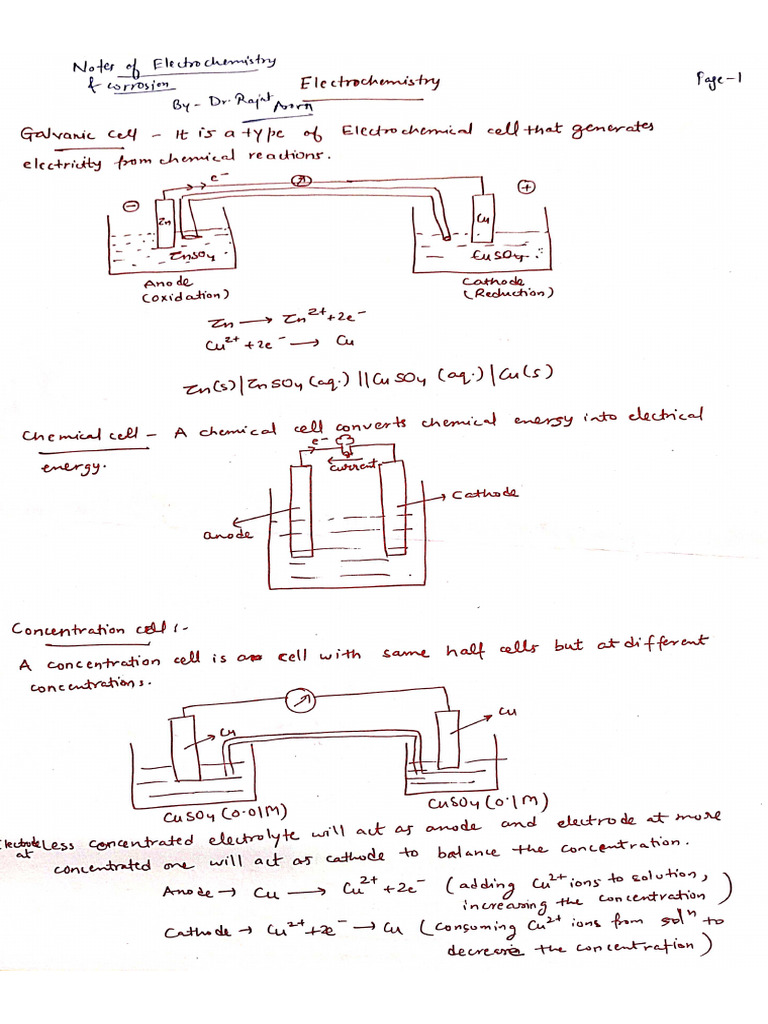 Notes of Electrochemistry
& corrosion
Electrochemistry
Page-1
By - Dr. Rajat Arora
Galvanic cell - It is a type of Electrochemical cell that generates
electricity from chemical reactions.
e-
- +
Zn Cu
ZnSO4 CuSO4
Anode Cathode
(oxidation) (Reduction)
Zn → Zn2+ + 2e-
Cu2+ + 2e- → Cu
Zn(s)|ZnSO4 (aq.) ||CuSO4 (aq.) |Cu(s)
Chemical cell - A chemical cell converts chemical energy into electrical
energy.
e-
current
Cathode
anode
Concentration cell :-
A concentration cell is a cell with same half cells but at different
concentrations.
Cu Cu
CuSO4 (0.01M) CuSO4 (0.1M)
Electrode at Less concentrated electrolyte will act as anode and electrode at more
concentrated one will act as cathode to balance the concentration.
Anode → Cu → Cu2+ + 2e- (adding Cu2+ ions to solution,
increasing the concentration)
Cathode → Cu2+ + 2e- → Cu (consuming Cu2+ ions from soln to
decrease the concentration)